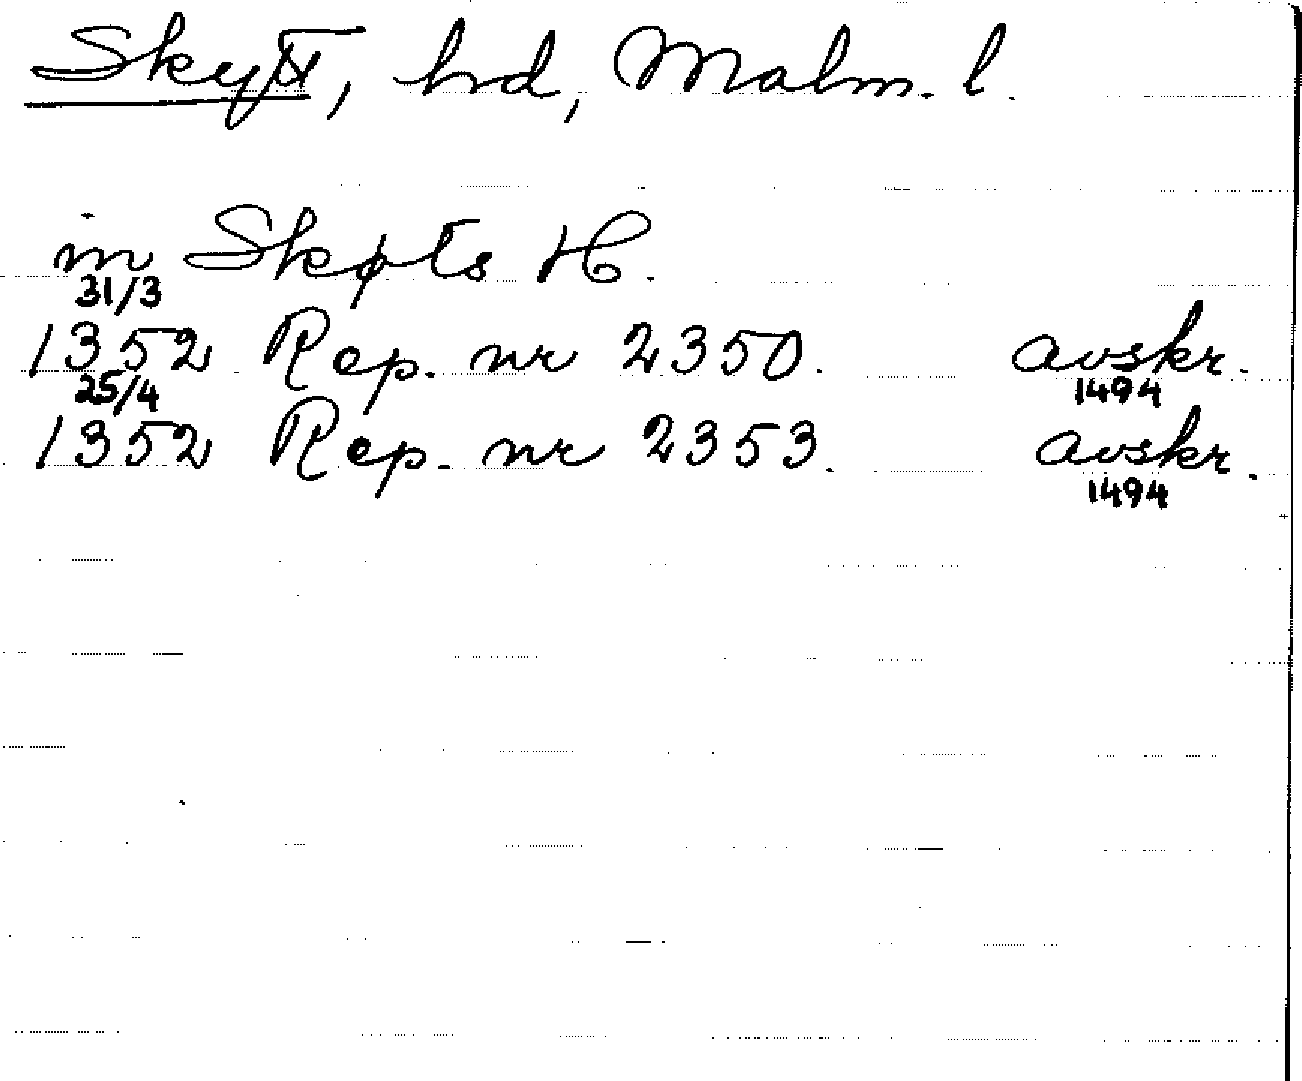 Skytt, hd, Malm. l.
in Skøts H.
31/3
1352 Rep. nr 2350. avskr.
1494
25/4
1352 Rep. nr 2353. avskr.
1494